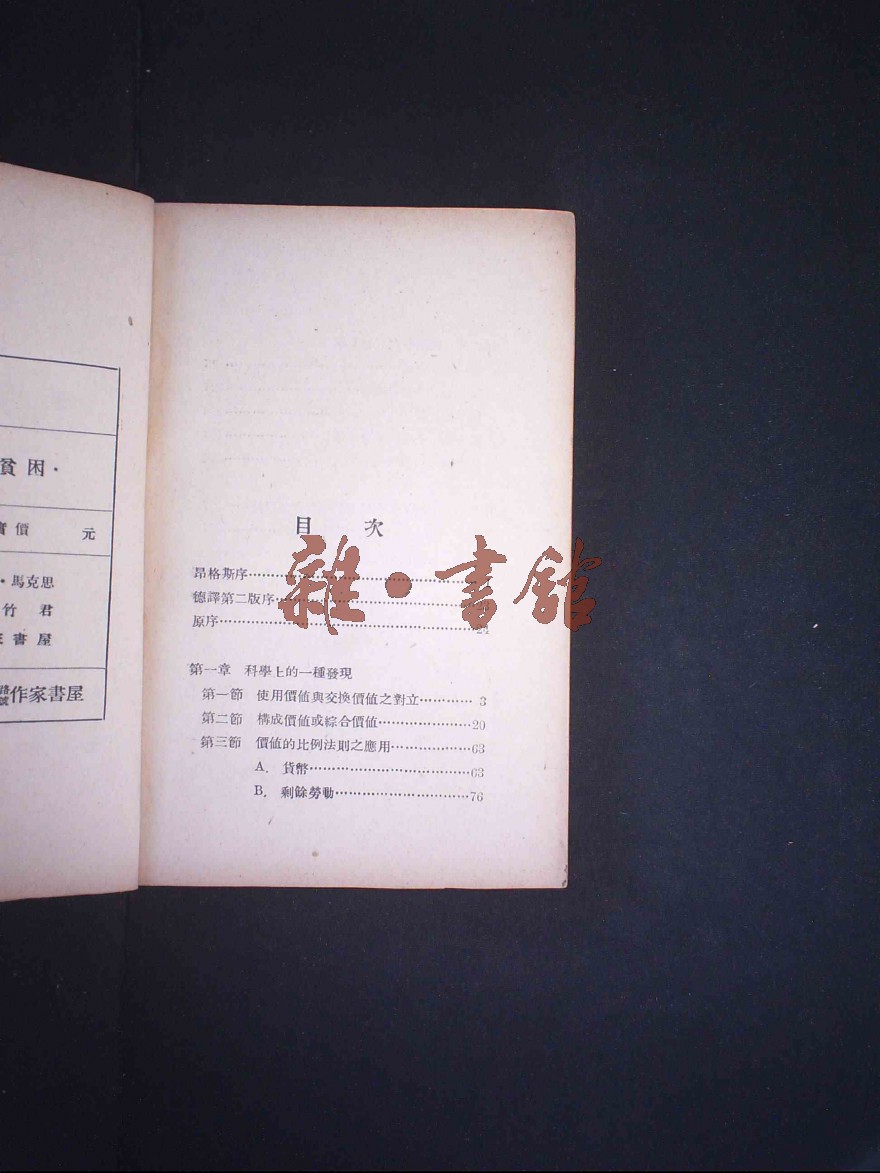 貧困·
實價 元
·馬克思
竹君
書屋
作家書屋
目次
昂格斯序
德譯第二版序
原序
第一章 科學上的一種發現
第一節 使用價值與交換價值之對立…………3
第二節 構成價值或綜合價值…………20
第三節 價值的比例法則之應用…………63
A. 貨幣…………63
B. 剩餘勞動…………76
雜·書館